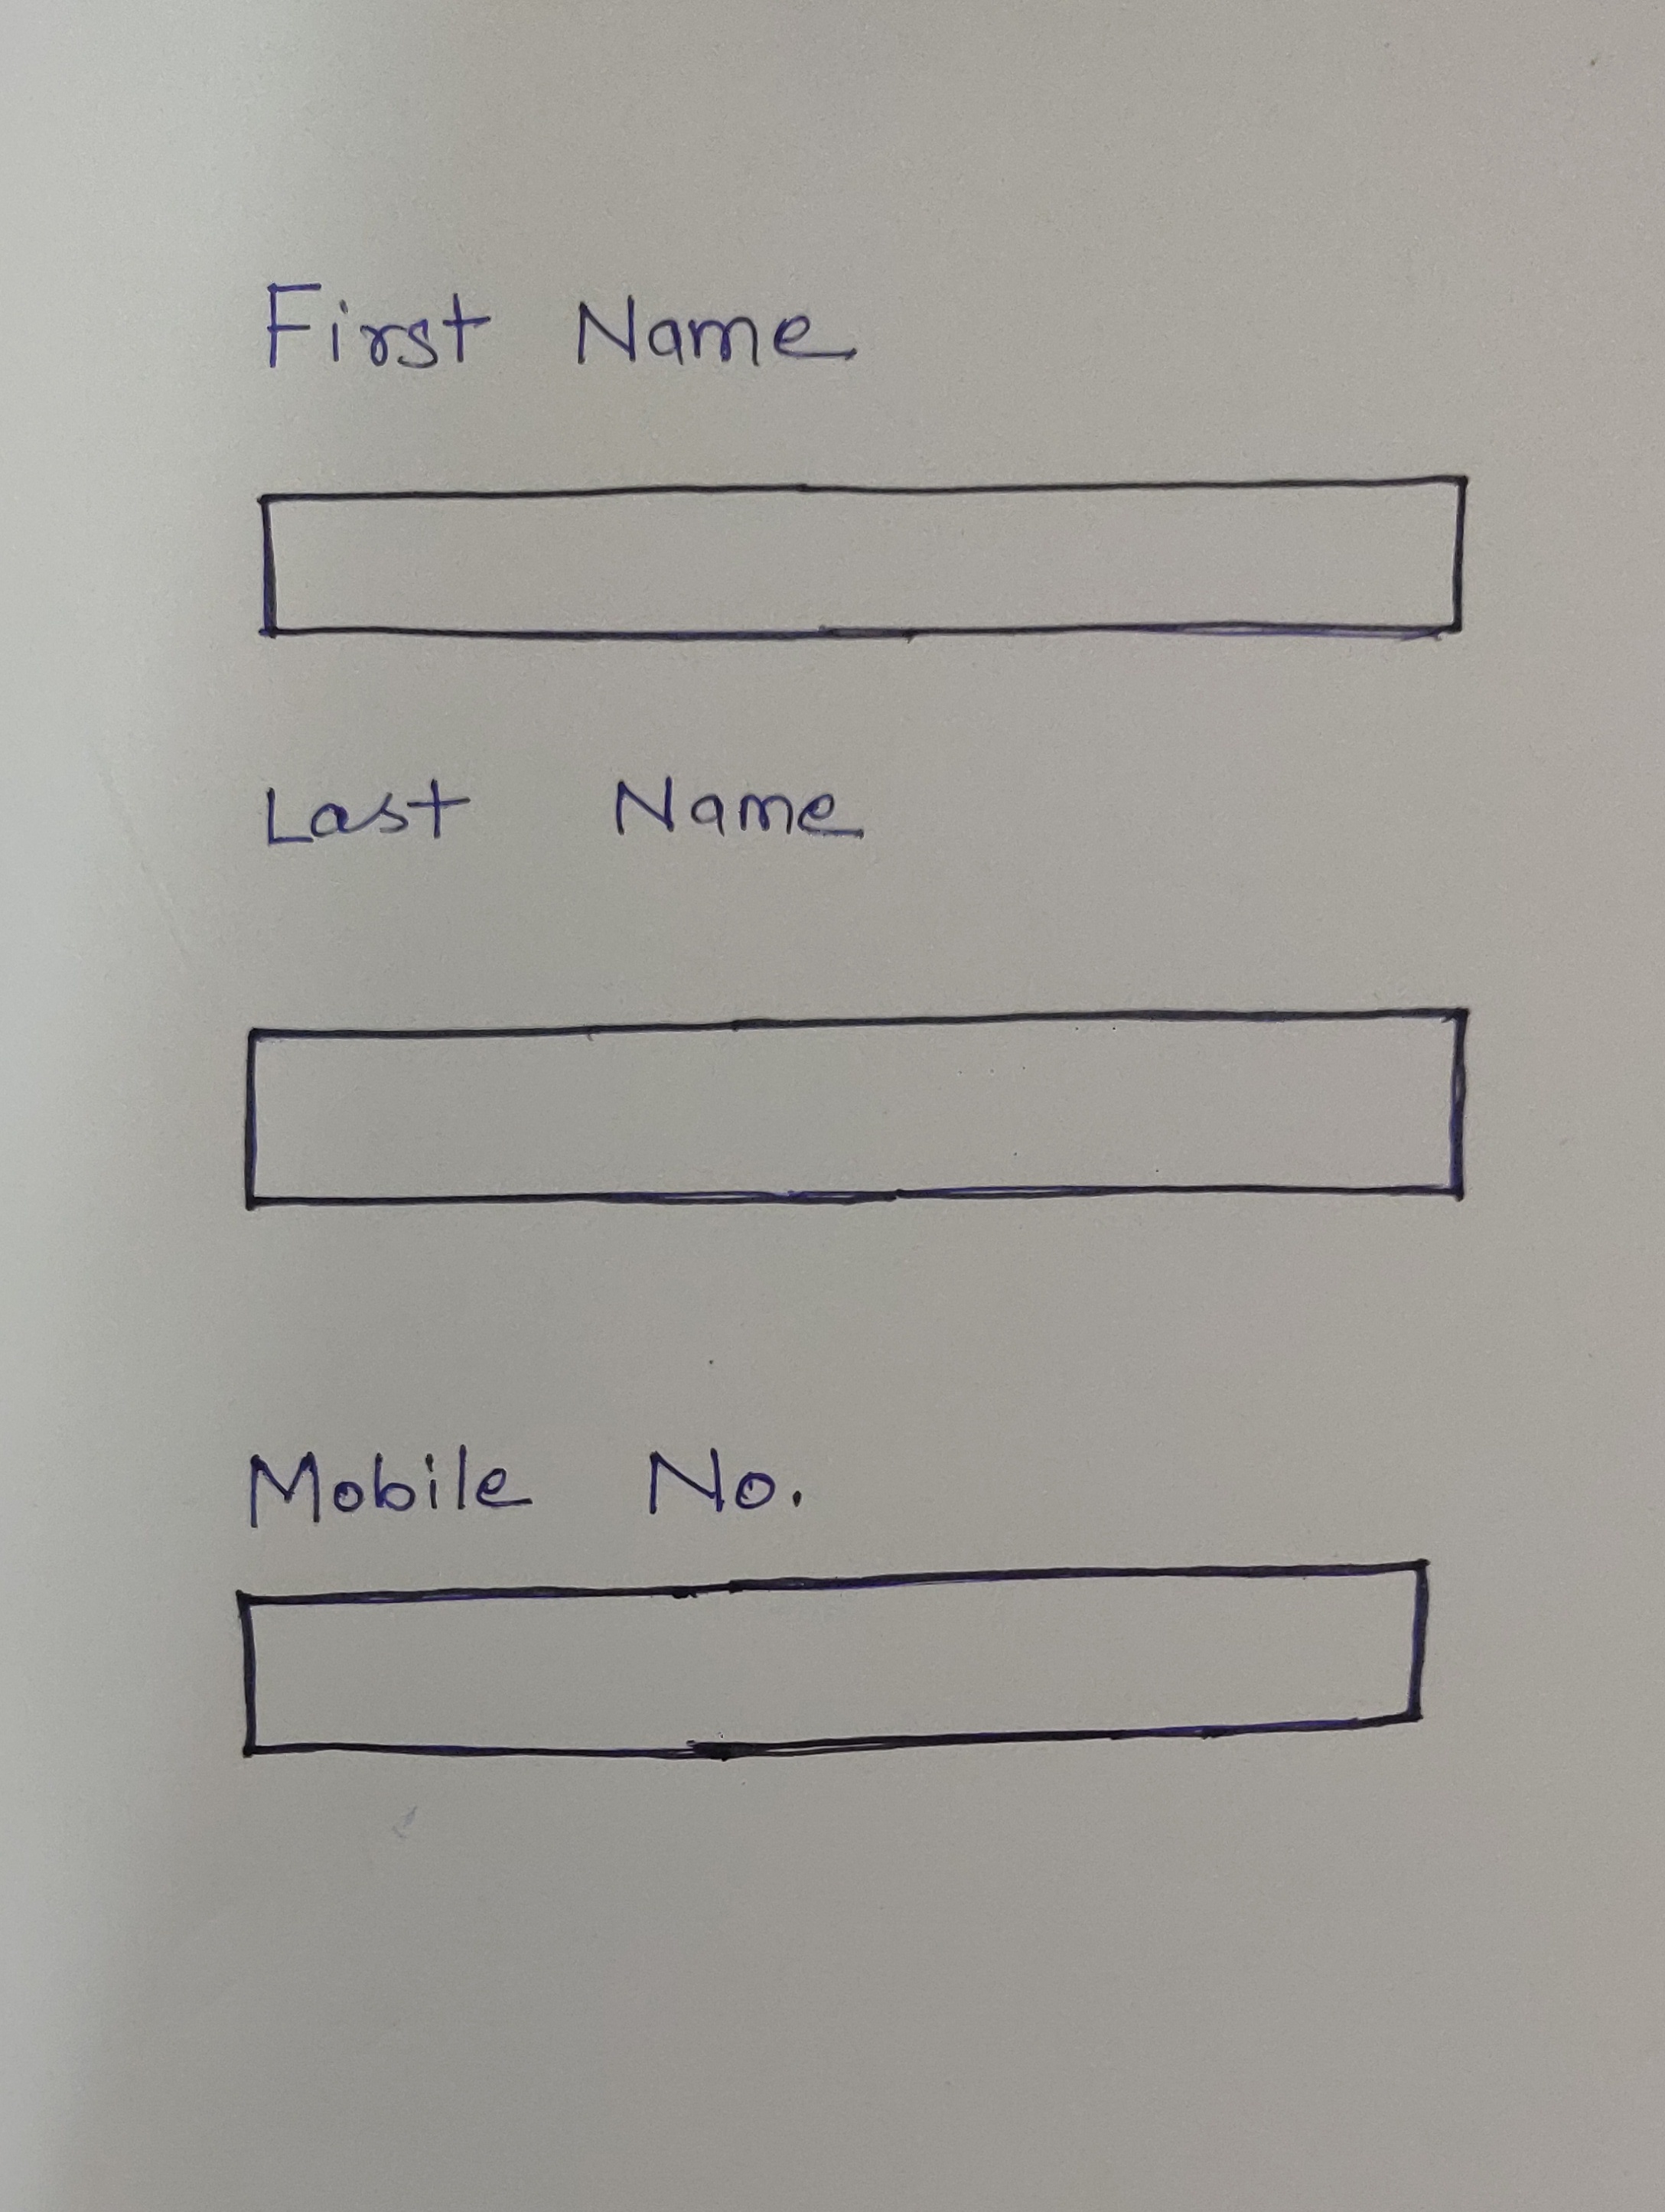 First Name
Last Name
Mobile No.